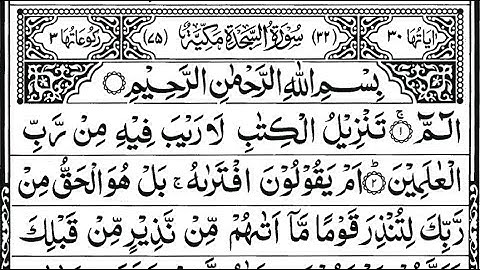 اٰیَاتُهَا ٣٠ (٣٢) سُوْرَةُ السَّجْدَةِ مَكِّيَّةٌ (٧٥) رُكُوْعَاتُهَا ٣
بِسْمِ اللّٰهِ الرَّحْمٰنِ الرَّحِيْمِ
الٓمّٓ ۚ﴿١﴾ تَنْزِيْلُ الْكِتٰبِ لَا رَيْبَ فِيْهِ مِنْ رَّبِّ
الْعٰلَمِيْنَ ؕ﴿٢﴾ اَمْ يَقُوْلُوْنَ افْتَرٰىهُ ۚ بَلْ هُوَ الْحَقُّ مِنْ
رَّبِّكَ لِتُنْذِرَ قَوْمًا مَّاۤ اَتٰىهُمْ مِّنْ نَّذِيْرٍ مِّنْ قَبْلِكَ